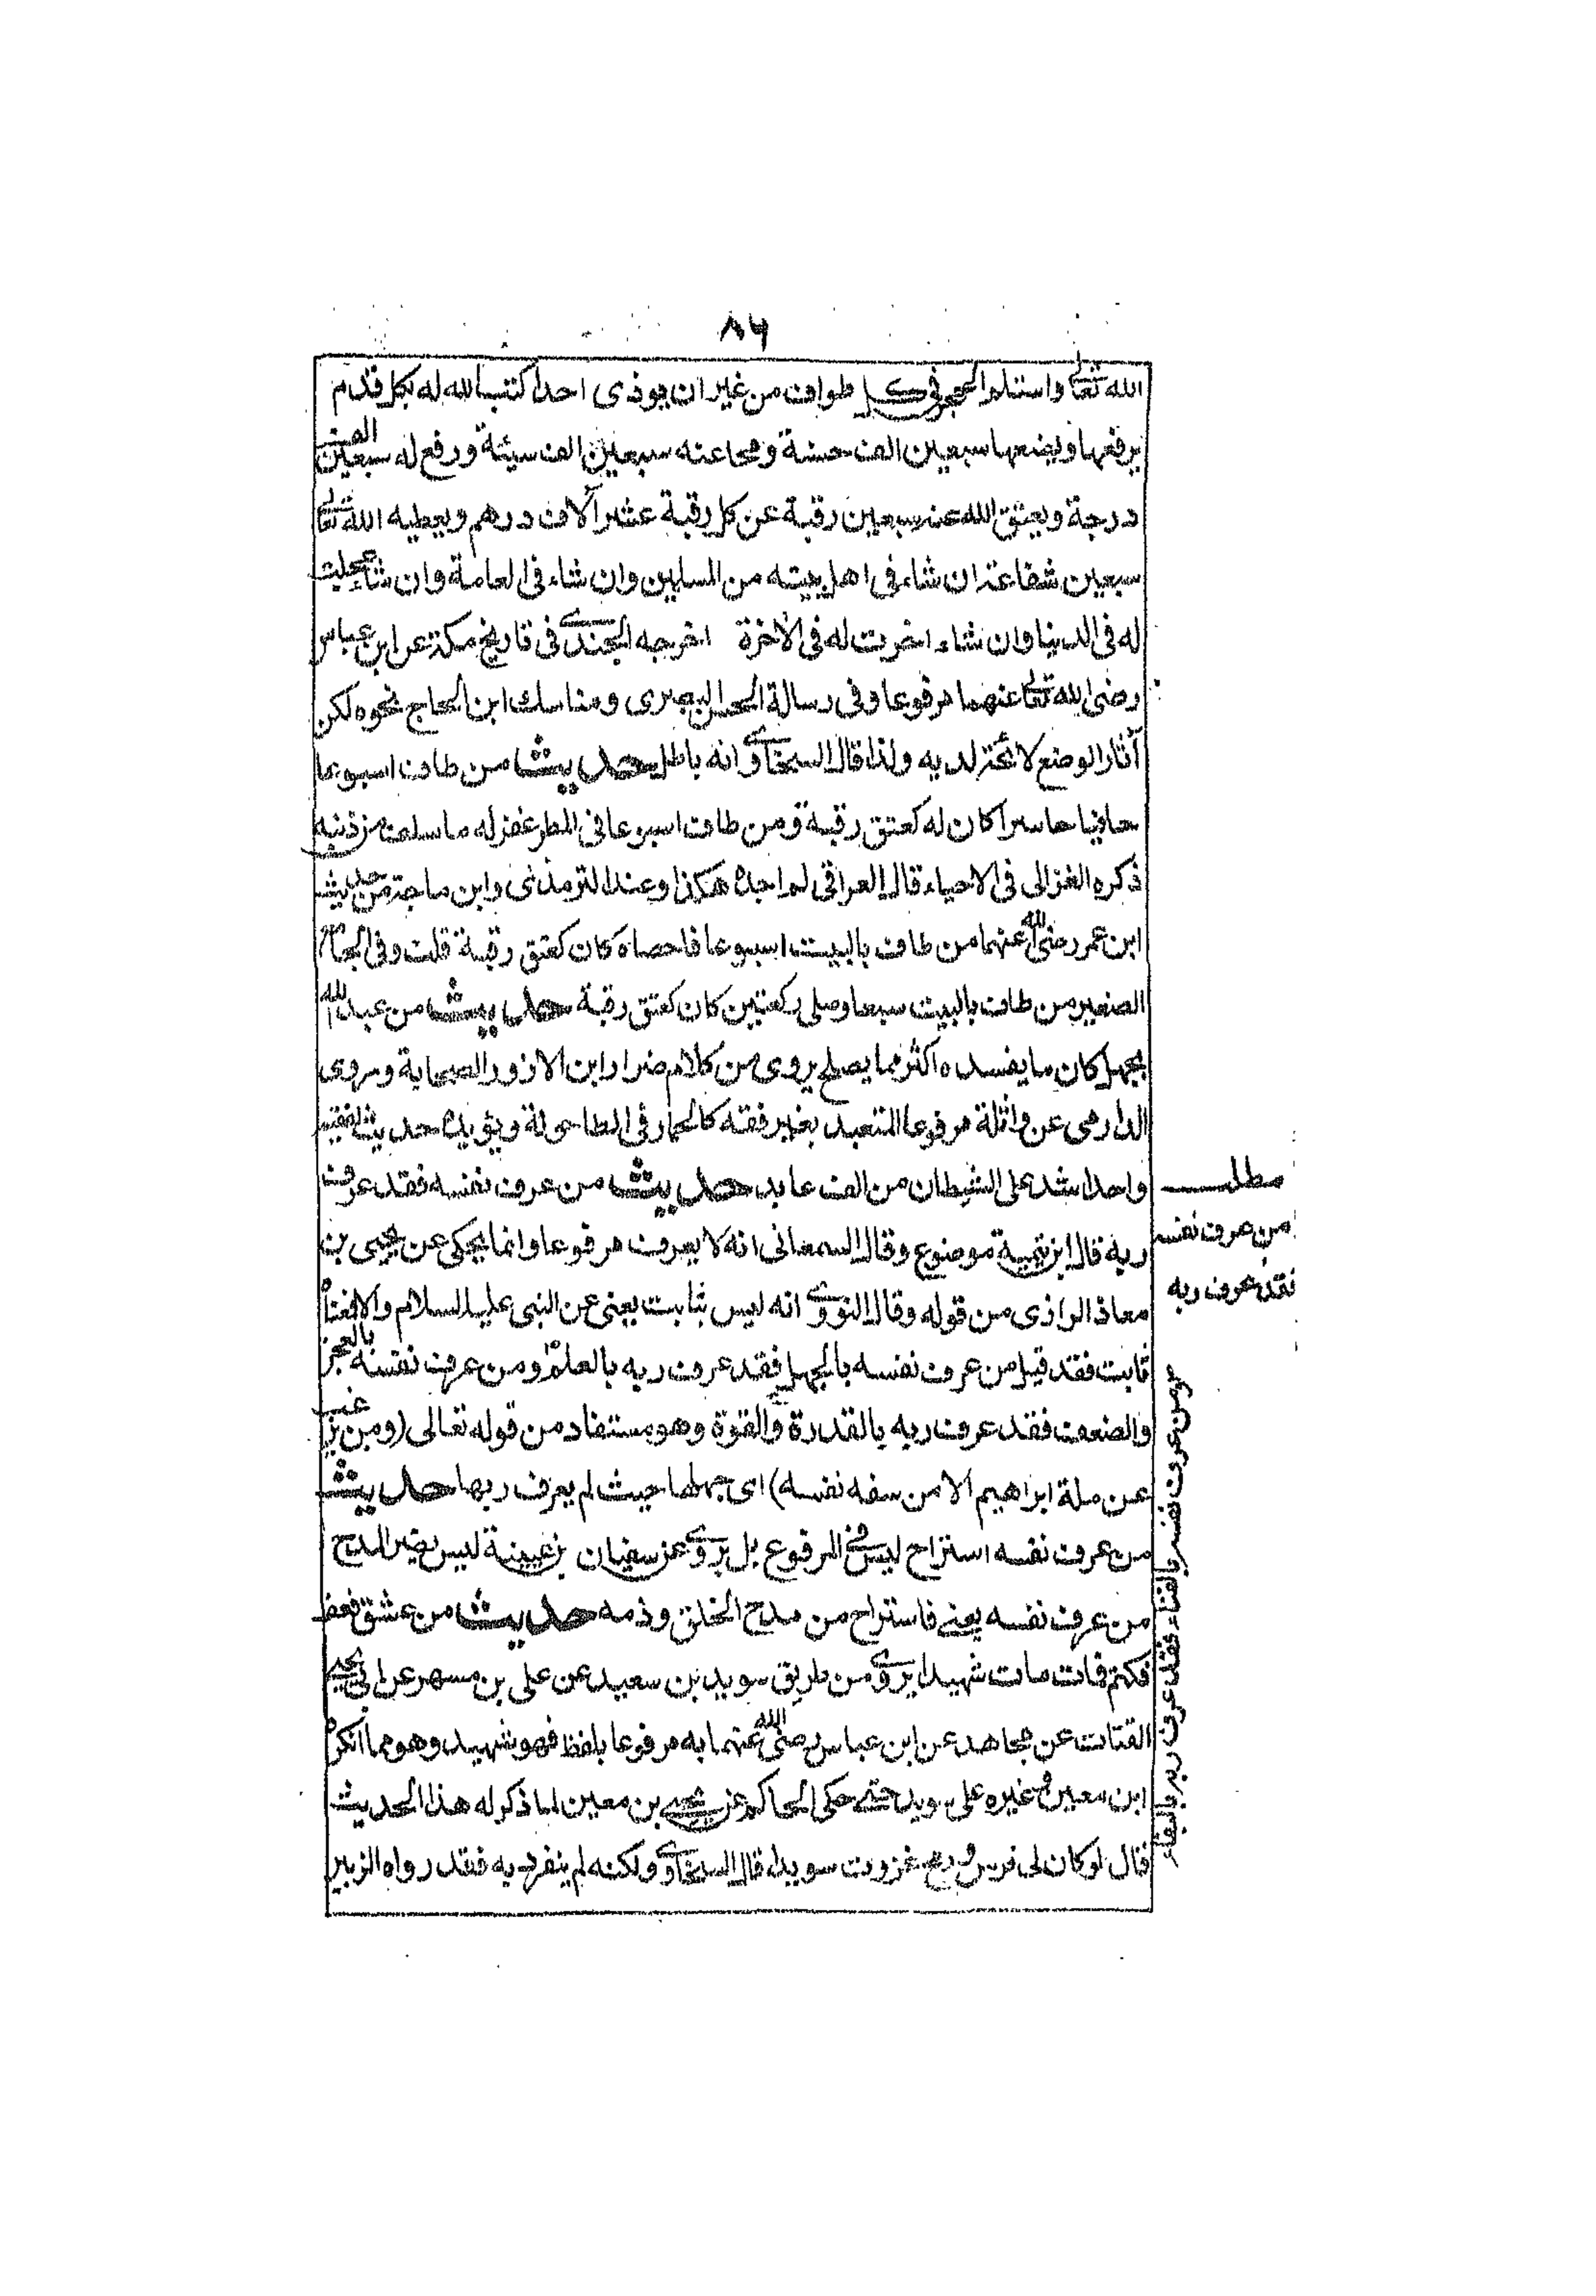 ٨٦
الله تعالى واستلم الحجر في كل طواف من غير ان يوذى احدا كتب الله له بكل قدم
يرفعها ويضعها سبعين الف حسنة ومحا عنه سبعين الف سيئة ورفع له سبعين الف
درجة ويعتق الله عنه سبعين رقبة عن كل رقبة عشر آلاف درهم ويعطيه الله تعالى
سبعين شفاعة ان شاء فى اهل بيته من المسلمين وان شاء فى العامة وان شاء عجلت
له فى الدنيا وان شاء اخرت له فى الآخرة اخرجه الجندى فى تاريخ مكة عن ابن عباس
رضى الله تعالى عنهما مرفوعا وفى رسالة الحسن البصرى ومناسك ابن الحاج نحوه لكن
آثار الوضع لائحة لديه ولذا قال السخاوى انه باطل حديث من طاف اسبوعا
حافيا حاسرا كان له كعتق رقبة ومن طاف اسبوعا فى المطر غفر له ما سلف من ذنبه
ذكره الغزالى فى الاحياء قال العراقى لم اجده هكذا وعند الترمذى وابن ماجة من حديث
ابن عمر رضى الله عنهما من طاف بالبيت اسبوعا فاحصاه كان كعتق رقبة قلت وفى الجامع
الصغير من طاف بالبيت سبعا وصلى ركعتين كان كعتق رقبة حديث من عبد الله
بجهل كان ما يفسده اكثر مما يصلح يروى من كلام ضرار ابن الازور الصحابة وروى
الدارمى عن واثلة مرفوعا المتعبد بغير فقه كالحمار فى الطاحونة ويؤيده حديث لفقيه
واحد اشد على الشيطان من الف عابد حديث من عرف نفسه فقد عرف
ربه قال ابن تيمية موضوع وقال السمعانى انه لا يعرف مرفوعا وانما يحكى عن يحيى بن
معاذ الرازى من قوله وقال النووى انه ليس بثابت يعنى عن النبى عليه السلام والا فمعناه
ثابت فقد قيل من عرف نفسه بالجهل فقد عرف ربه بالعلم ومن عرف نفسه بالعجز
والضعف فقد عرف ربه بالقدرة والقوة وهو مستفاد من قوله تعالى (ومن يرغب
عن ملة ابراهيم الا من سفه نفسه) اى جهلها حيث لم يعرف ربها حديث
من عرف نفسه استراح ليس فى المرفوع بل يروى عن سفيان بن عيينة ليس يضير المدح
من عرف نفسه يعنى فاستراح من مدح الخلق وذمه حديث من عشق فعف
فكتم فمات مات شهيدا يروى من طريق سويد بن سعيد عن على بن مسهر عن ابى يحيى
القتات عن مجاهد عن ابن عباس رضى الله عنهما به مرفوعا بلفظ فهو شهيد وهو مما انكره
ابن معين وغيره على سويد حتى حكى الحاكم عن يحيى بن معين لما ذكر له هذا الحديث
قال لو كان لى فرس ورمح غزوت سويدا قال السخاوى ولكنه لم ينفرد به فقد رواه الزبير
مطلب
من عرف نفسه
فقد عرف ربه
ومن عرف نفسه بالفناء فقد عرف ربه بالبقاء